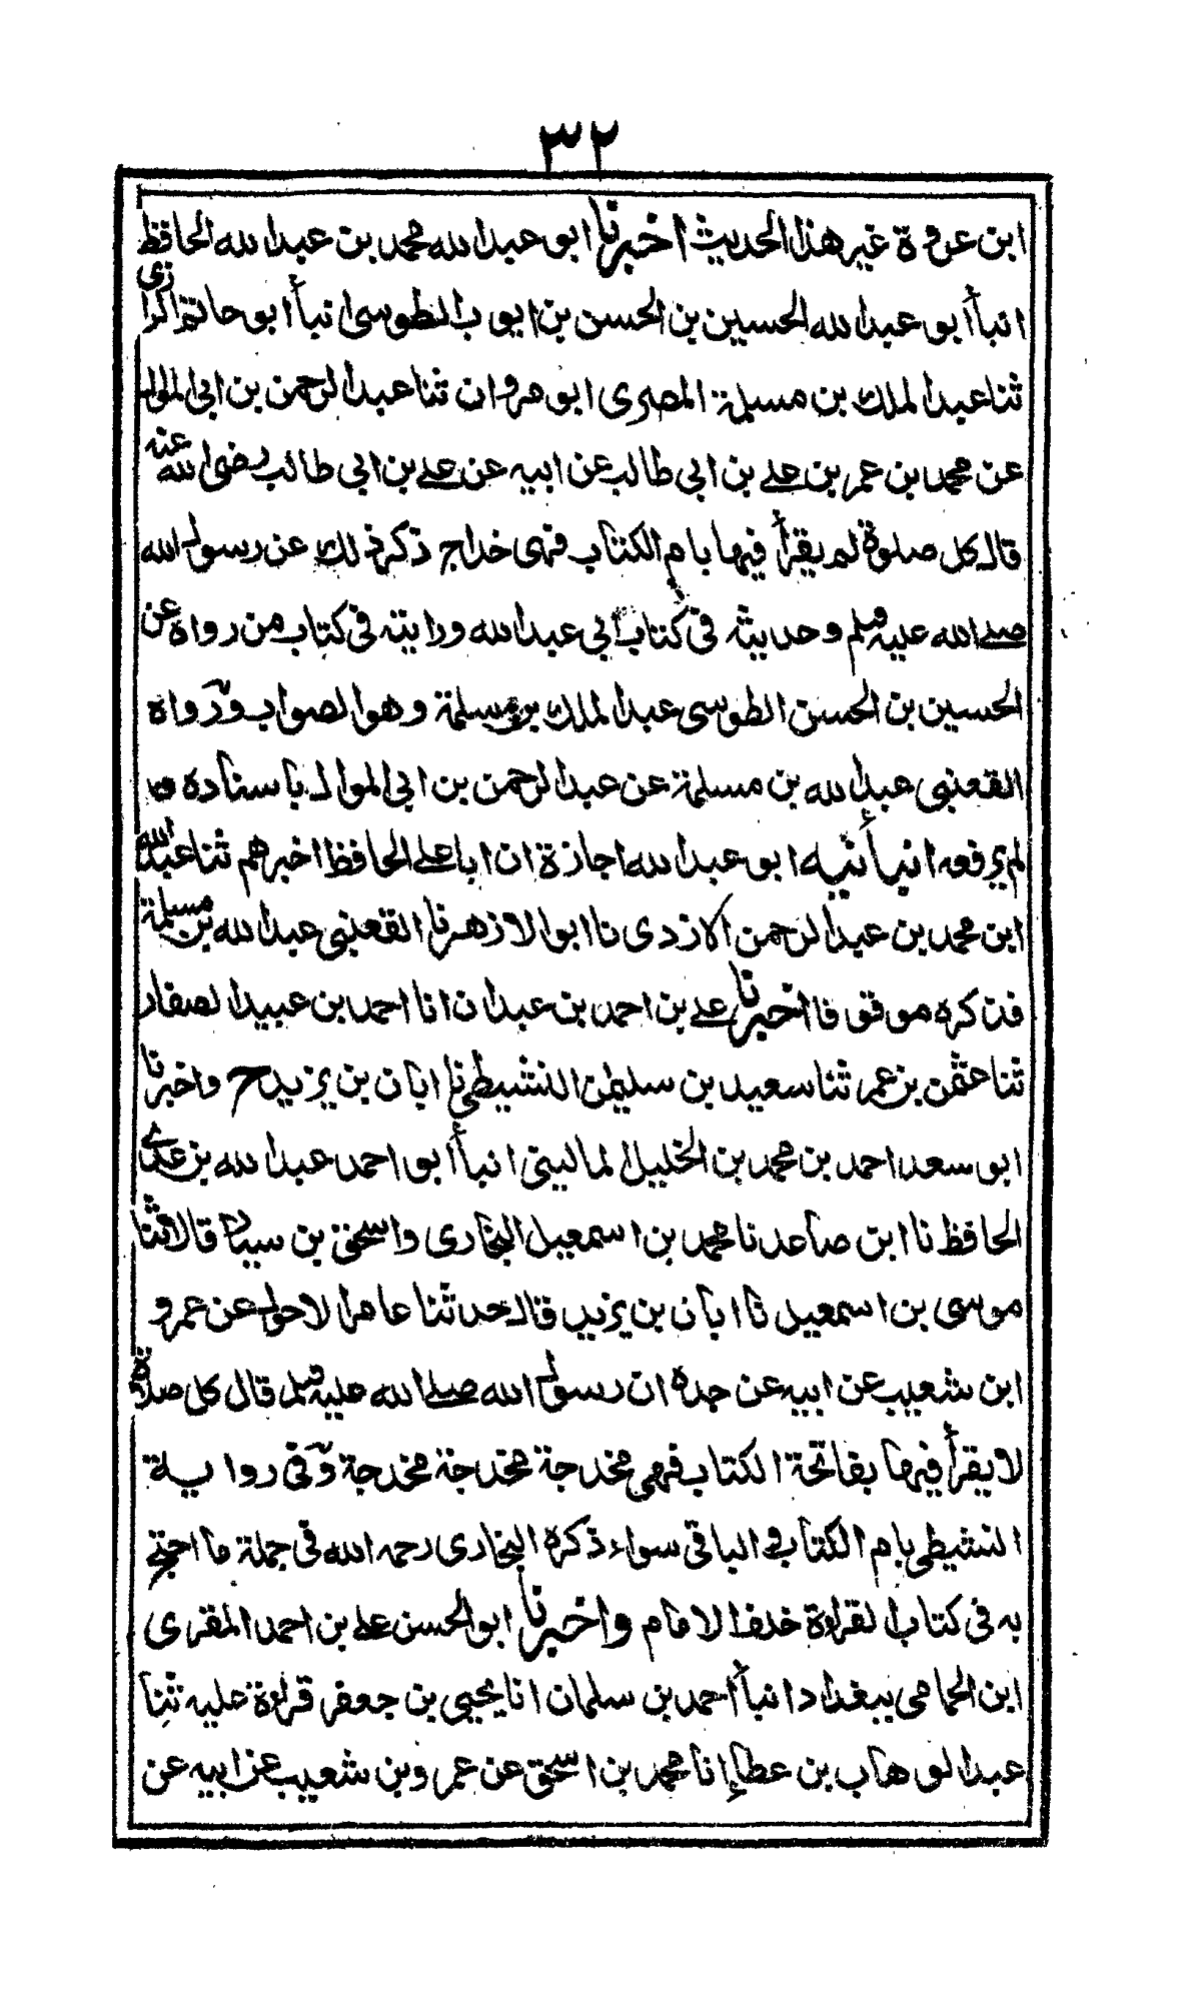 ٣٢
ابن عروة غير هذا الحديث اخبرنا ابو عبد الله محمد بن عبد الله الحافظ
انبأ أبو عبد الله الحسين بن الحسن بن ايوب الطوسى انبأ ابو حاتم الرازى
ثنا عبد الملك بن مسلمة المصرى ابو مروان ثنا عبد الرحمن بن ابى الموال
عن محمد بن عمر بن على بن ابى طالب عن ابيه عن على بن ابى طالب رضى الله عنه
قال كل صلوة لم يقرأ فيها بام الكتاب فهى خداج ذكر ذلك عن رسول الله
صلى الله عليه وسلم وحديثه فى كتاب أبى عبد الله ورايته فى كتاب من رواه عن
الحسين بن الحسن الطوسى عبد الملك بن مسلمة وهو الصواب ورواه
القعنبى عبد الله بن مسلمة عن عبد الرحمن بن ابى الموال باسناده
لم يرفعه انبأنيه ابو عبد الله اجازة ان ابا على الحافظ اخبرهم ثنا عبد الله
ابن محمد بن عبد الرحمن الازدى نا ابو الازهر نا القعنبى عبد الله بن مسلمة
فذكره موقوفا اخبرنا على بن احمد بن عبدان انا احمد بن عبيد الصفار
ثنا عثمن بن عمر ثنا سعيد بن سليمن النشيطى نا ابان بن يزيد ح واخبرنا
ابو سعد احمد بن محمد بن الخليل المالينى انبأ أبو احمد عبد الله بن عدى
الحافظ نا ابن صاعد نا محمد بن اسمعيل البخارى واسحق بن سيار قالا ثنا
موسى بن اسمعيل نا ابان بن يزيد قال حدثنا عامر الاحول عن عمرو
ابن شعيب عن ابيه عن جده ان رسول الله صلى الله عليه وسلم قال كل صلوة
لا يقرأ فيها بفاتحة الكتاب فهى مخدجة مخدجة مخدجة وفى رواية
النشيطى بام الكتاب و الباقى سواء ذكره البخارى رحمه الله فى جملة ما احتج
به فى كتاب القراءة خلف الامام واخبرنا ابو الحسن على بن احمد المقرى
ابن الحمامى ببغداد انبأ أحمد بن سلمان انا يحيى بن جعفر قراءة عليه ثنا
عبد الوهاب بن عطاء انا محمد بن اسحق عن عمرو بن شعيب عن ابيه عن